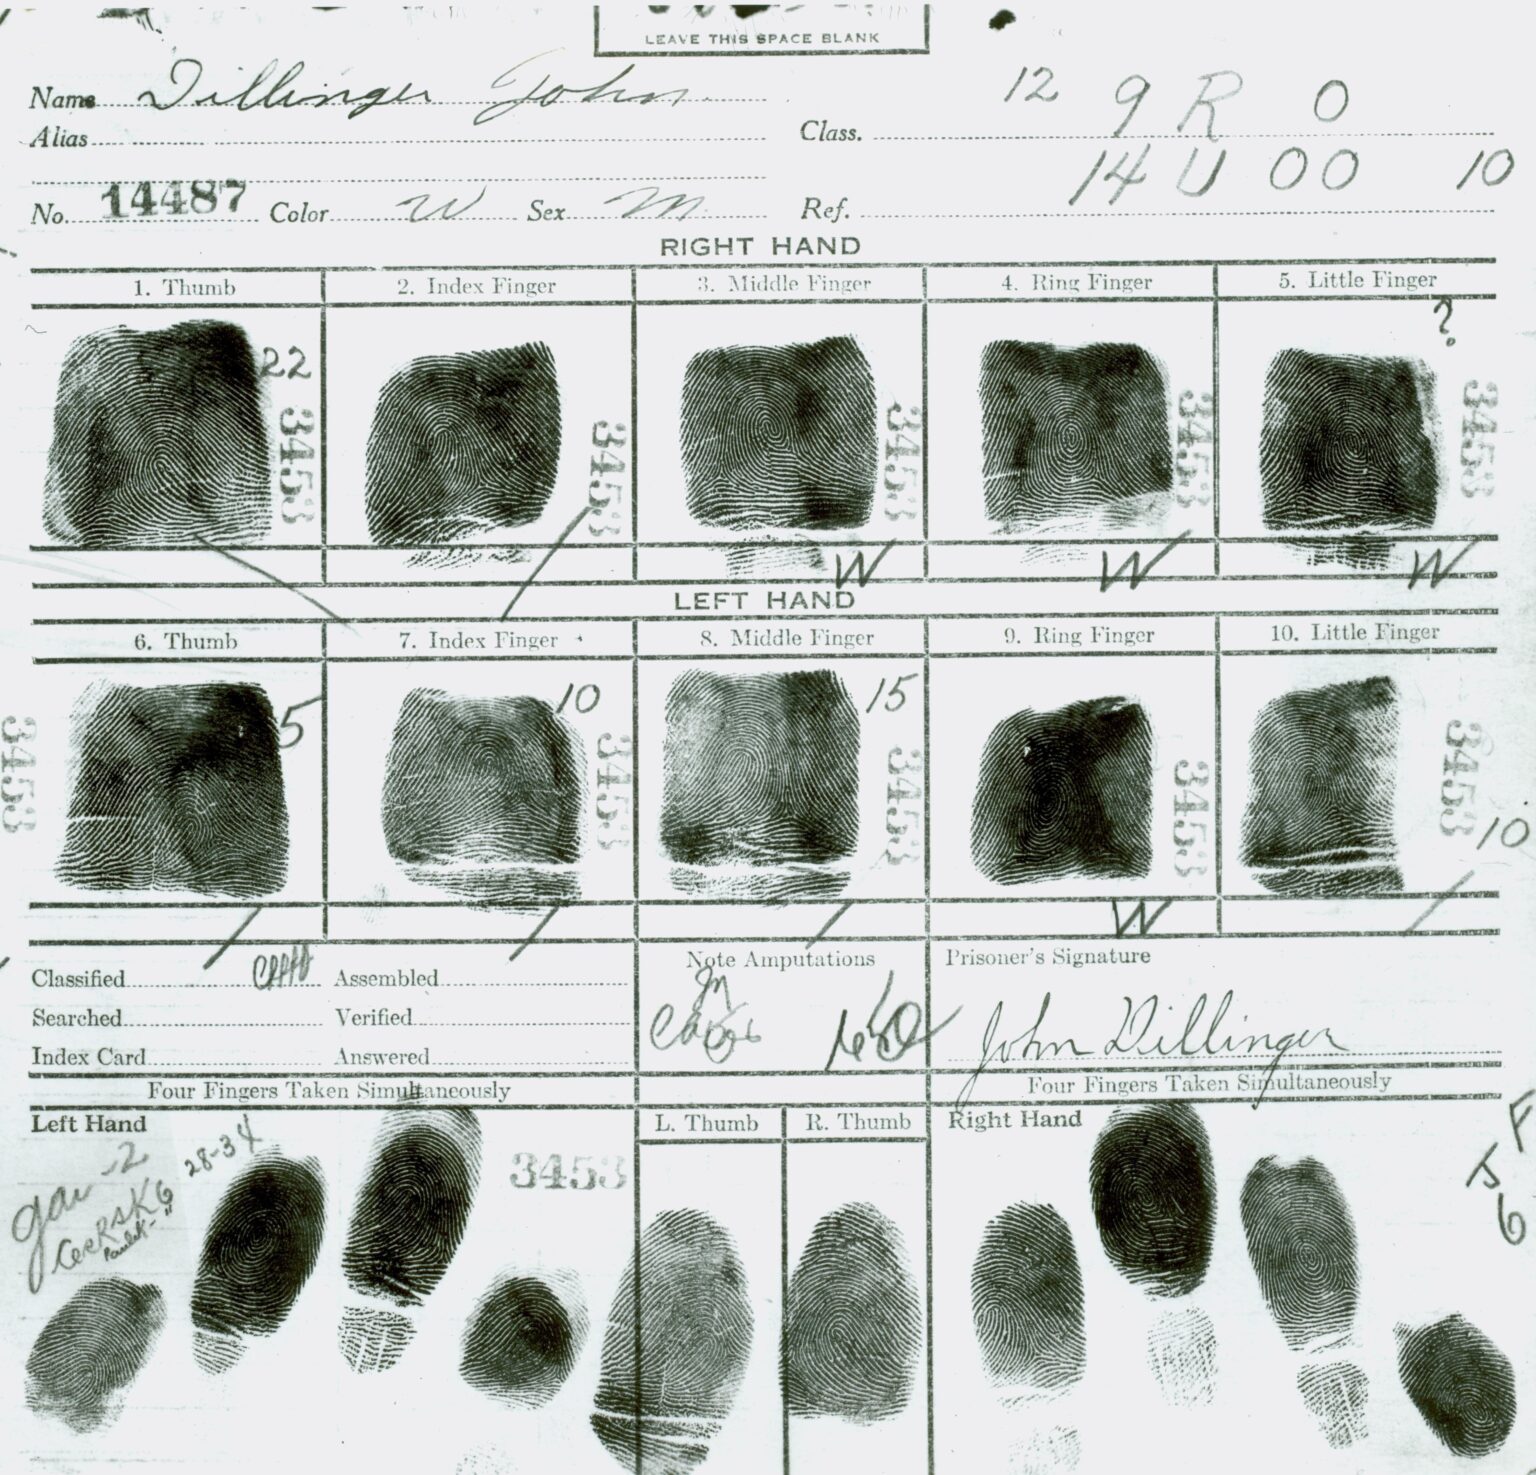 LEAVE THIS SPACE BLANK
Name Dillinger John
12 9 R O
Alias
Class.
14 U OO 10
No. 14487 Color W Sex M
Ref.
RIGHT HAND
1. Thumb 2. Index Finger 3. Middle Finger 4. Ring Finger 5. Little Finger
?
22
3453 3453 3453 3453 3453
\ / W W W
LEFT HAND
6. Thumb 7. Index Finger 8. Middle Finger 9. Ring Finger 10. Little Finger
5 10 15
3453 3453 3453 3453 3453
10
/ / / W /
Classified Assembled
Note Amputations
Prisoner's Signature
Searched Verified
John Dillinger
Index Card Answered
Four Fingers Taken Simultaneously
Four Fingers Taken Simultaneously
Left Hand
L. Thumb R. Thumb
Right Hand
28-34
3453
F
J
6